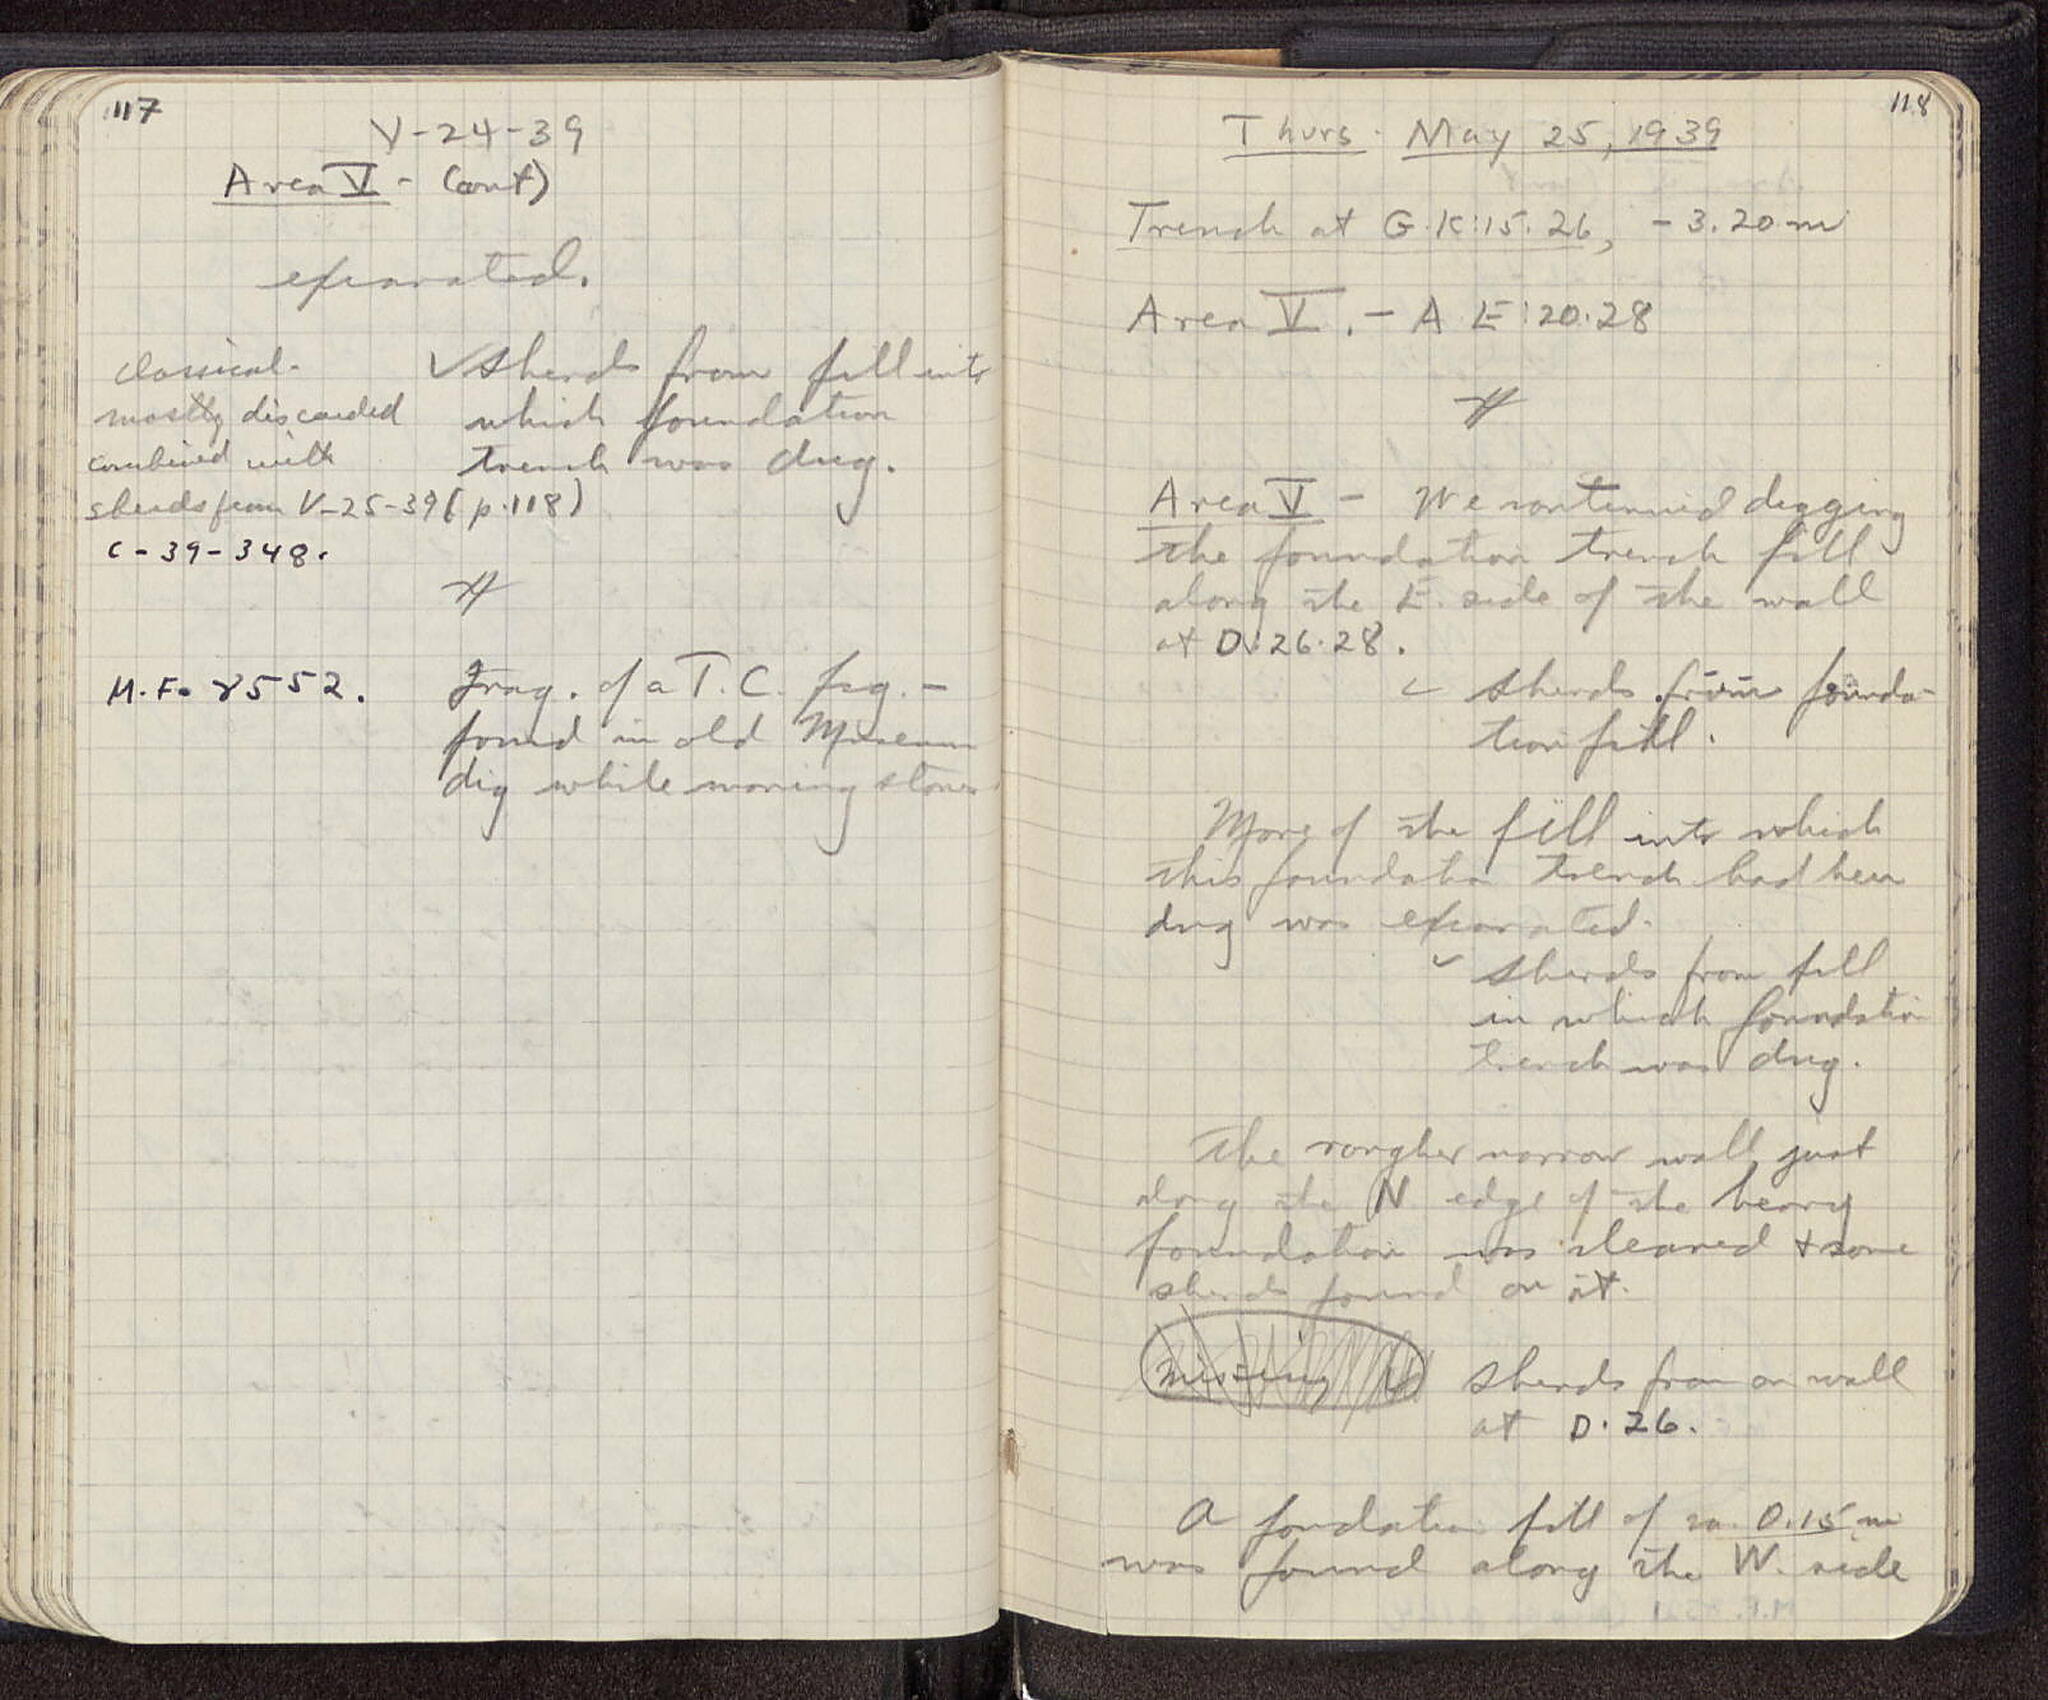 117
V-24-39
Area V - (cont)
excavated.
classical.
mostly discarded
combined with
sherds from V-25-39 (p.118)
C-39-348.
✓ sherds from fill into
which foundation
trench was dug.
M.F. 8552.
Frag. of a T.C. fig. -
found in old Museum
dig while moving stones
118
Thurs. May 25, 1939
Trench at G.K:15.26, -3.20 m
Area V. - A E:20.28
Area V - We continued digging
the foundation trench fill
along the E. side of the wall
at D:26.28.
✓ sherds from founda-
tion fill.
More of the fill into which
this foundation trench had been
dug was excavated.
✓ sherds from fill
in which foundation
trench was dug.
The rougher narrow wall just
along the N. edge of the heavy
foundation was cleared + some
sherds found on it.
missing
sherds from on wall
at D.26.
A foundation fill of ca. 0.15 m
was found along the W. side